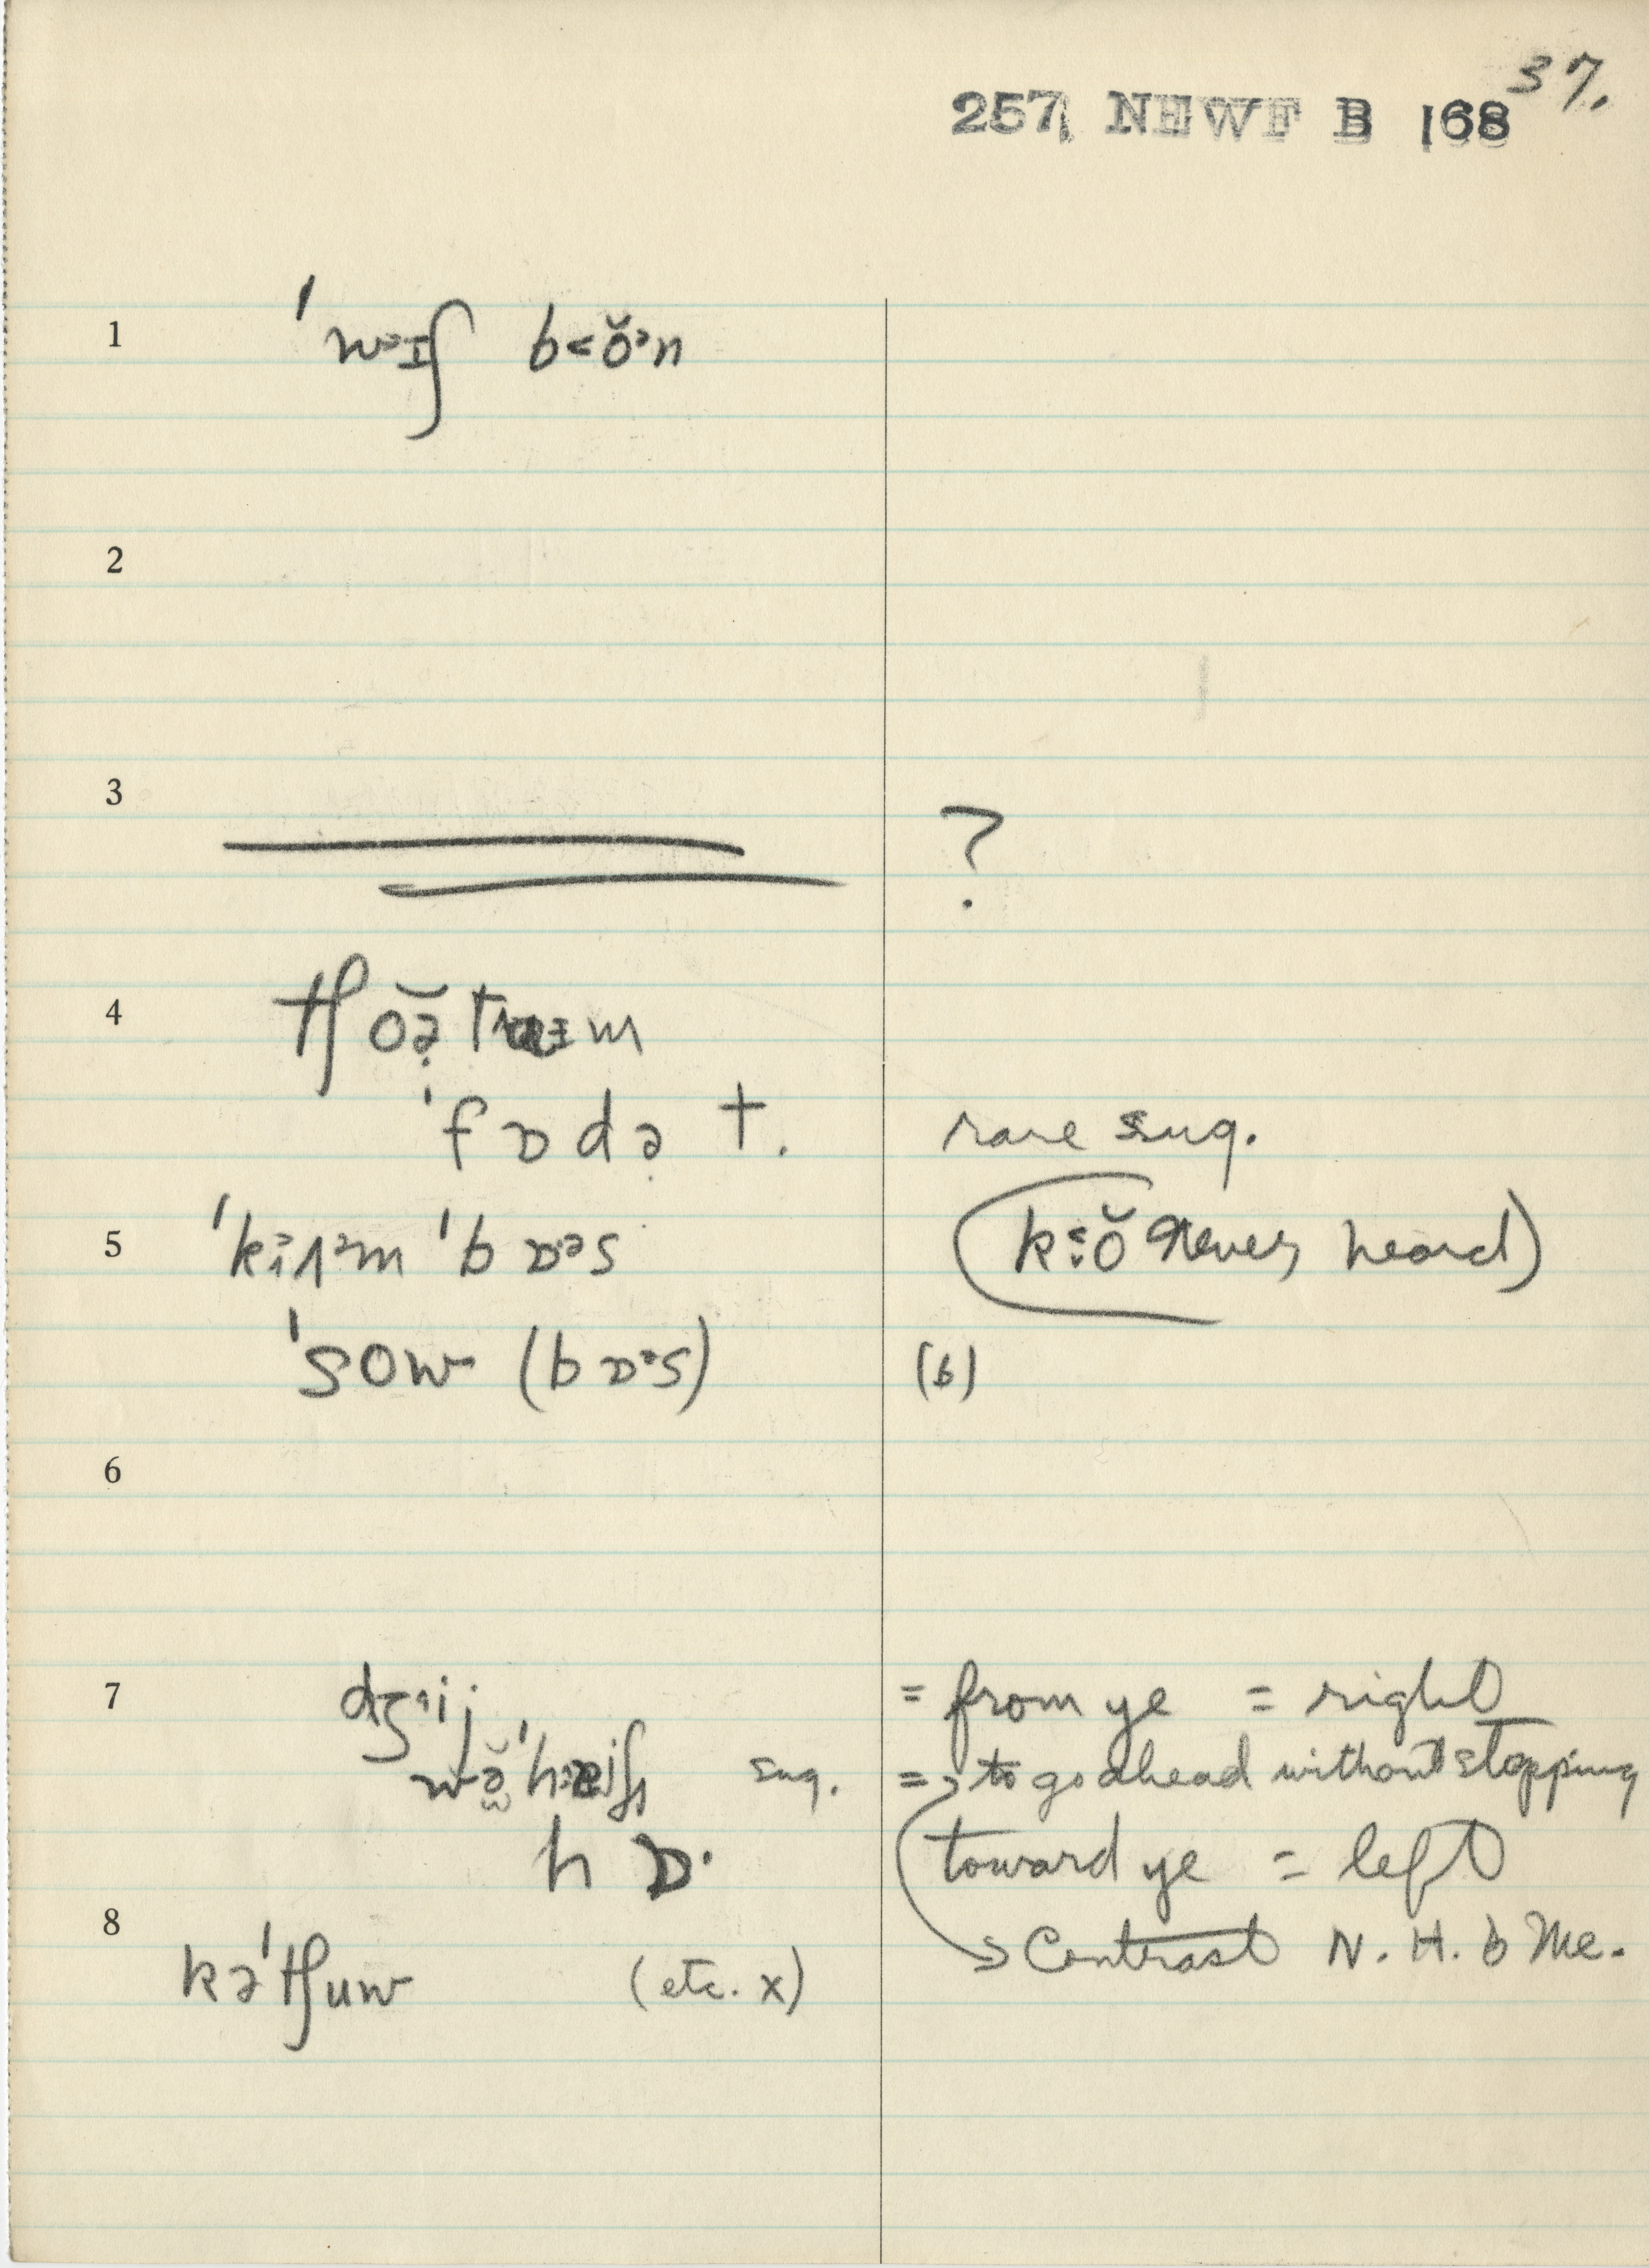 37.
257 NEWF B 168
1 ˈwᵊɪʃ b<ŏᵊn
2
3 ?
4 tʃŏə̣
ˈfɒdə̣ t. rare sug.
5 ˈbɒᵊs never heard)
ˈsow (bɒᵊs) (b)
6
7 = from ye = right
sug. = to go ahead without stopping
hɒ· toward ye = left
8 → Contrast N. H. b Me.
kəˈtʃuw (etc. x)